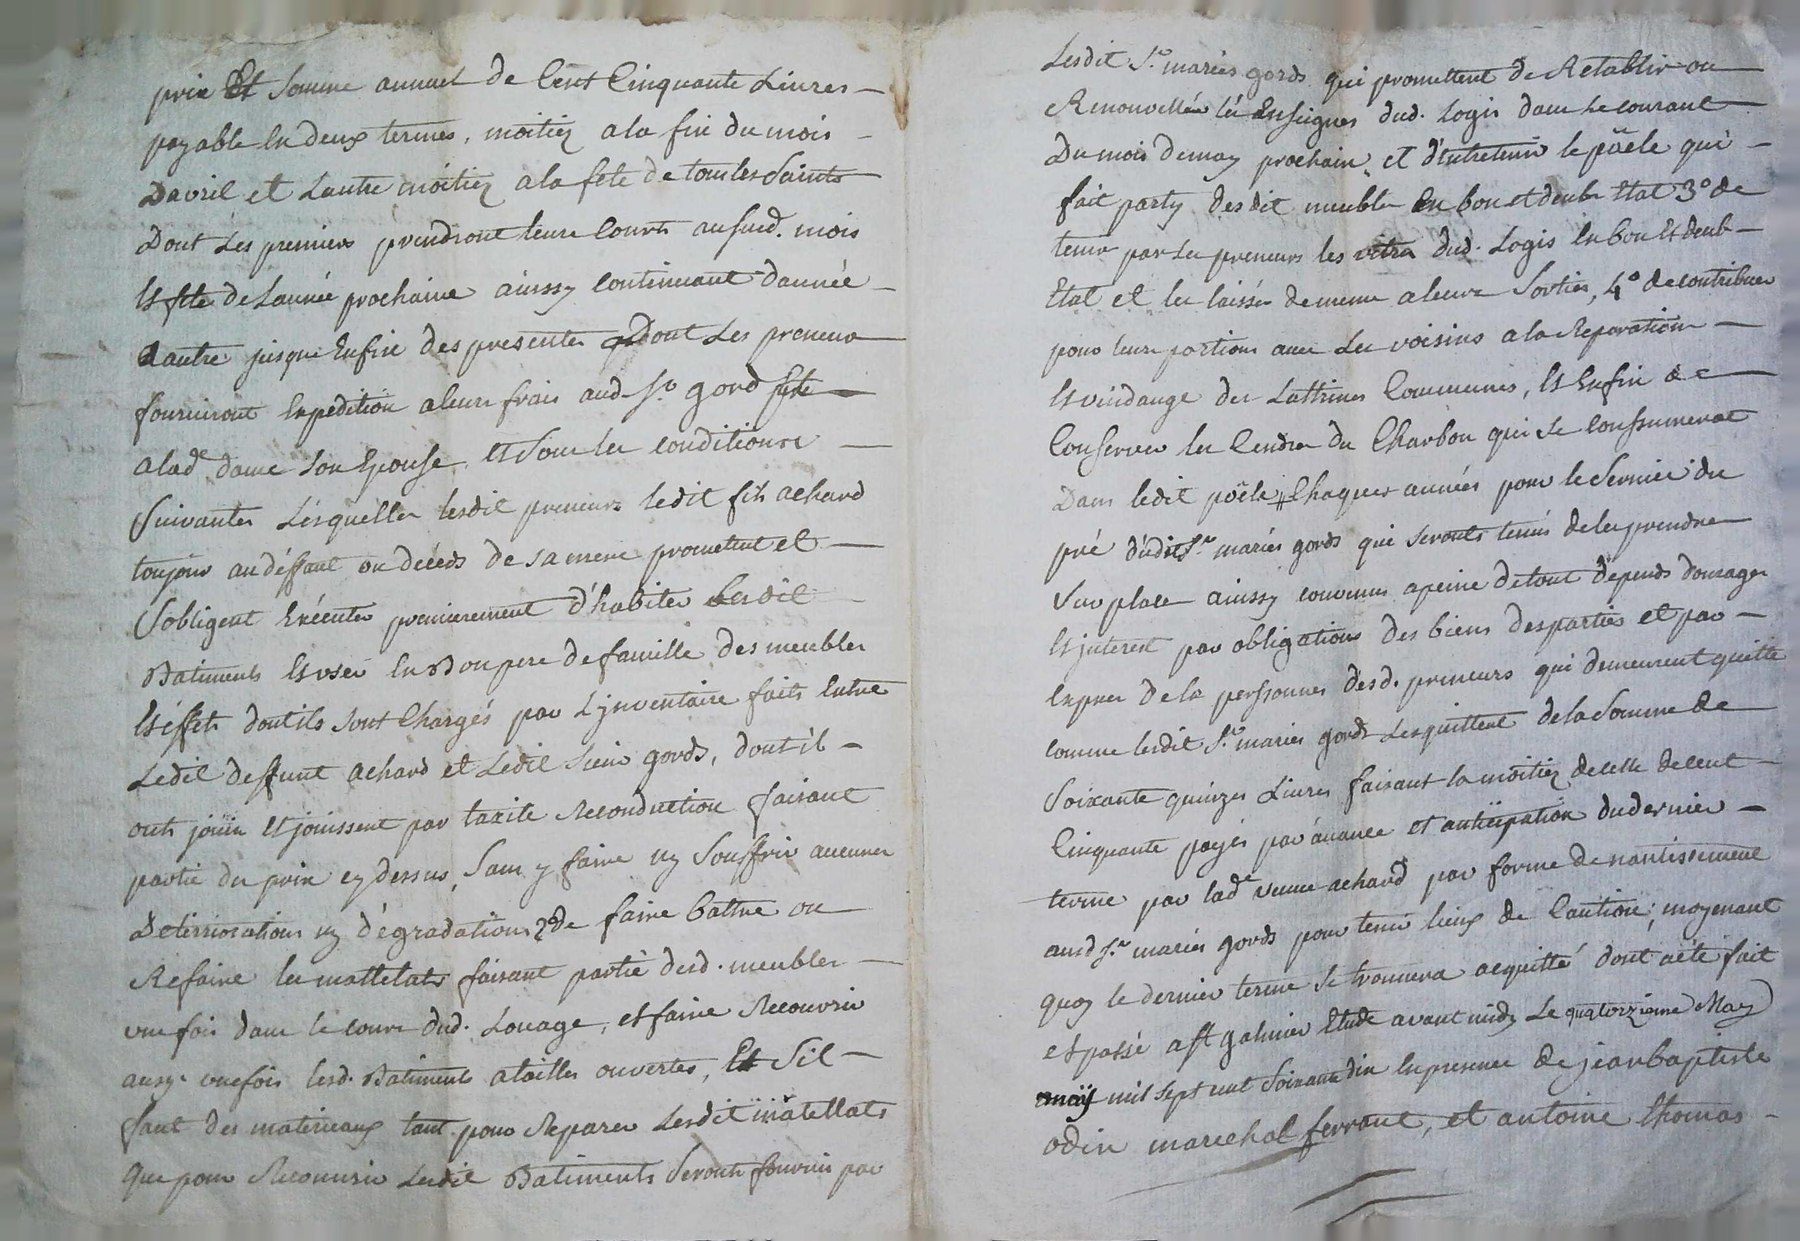 prix Et somme annuel de Cent Cinquante Livres
payable En deux termes, moitiez a la fin du mois
Davril et Lautre moitiez a la fete de tous les Saints
Dont Les premiers prendront leurs Cours ausud. mois
Et fete de Lannée prochaine ainssy Continuant dannée
a autre jusque Enfin des presentes Dont Les preneurs
fourniront Expedition a leurs frais aud. Sr. gord fete
a lad.e dame son Epouse Et Sous les conditions
Suivantes Lésquelles lesdit preneurs ledit fils achard
toujours au déffaut ou décéds de sa mere promettent et
Sobligent Exécuter premierement d'habiter Lesdit
Batiments Et user En Bon pere de famille des meubles
Et éffets dont ils sont Chargés par L'jnventaire faits Entre
Ledit deffunt achard et Ledit sieur gords, dont il
onts jouïr Et jouissent par taxite Reconduction faisant
partie du prix cy dessus, Sans y faire ny Souffrir aucunes
Déterriorations ny dégradations 2° de faire battre ou
Refaire les mattelats faisant partie desd. meubles
une fois dans le cours dud. Louage, et faire Recouvrir
aussy une fois lesd. Batiments a toilles ouvertes, Et Sil
faut des materieaux tant pour Reparer Lesdit matellats
que pour Recouvrir Lesdit Batiments Seronts fournis par
Lesdit Sr. mariés gords qui promettent de Retablir ou
Renouvellée lés Enseignes dud. Logis dans le courant
Du mois de may prochain, et d'Entretenir le pöele qui
fait party desdit meubles En bon et deub Etat 3° de
tenir par Les preneurs les vitres dud. Logis En bon Et deub
Etat et les laisser de meme a leurs Sorties, 4° de contribuer
pour leurs portions avec Les voisins a la Reparation
Et vuidange des Lattrines Communes, Et Enfin de
Conserver les Cendres du Charbon qui se Conssumerat
Dans ledit poële Chaques années pour le Service du
pré dudit Sr. mariés gords qui seronts tenus de les prendre
Sur place ainssy convenus a peine de tout depends domages
Et jnterest par obligations des biens des parties et par
Exprer De la perssonnes desd. preneurs qui demeurent quitte
comme lesdit Sr. mariés gords Les quittent de la Somme de
Soixante quinzes Livres faisant la moitiez de celle de cent
Cinquante payés par avance et anticipation du dernier
terme par lad.e veuve achard par forme de nantissement
ausd. Sr. mariés gords pour tenir lieux de Caution, moyenant
quoy le dernier terme se trouvera acquitté dont acte fait
et passé a St galmier Etude avant midy Le quatorzieme May
may mil sept cent soixante dix En presence de jean baptiste
odin marechal ferrant, et antoine thomas